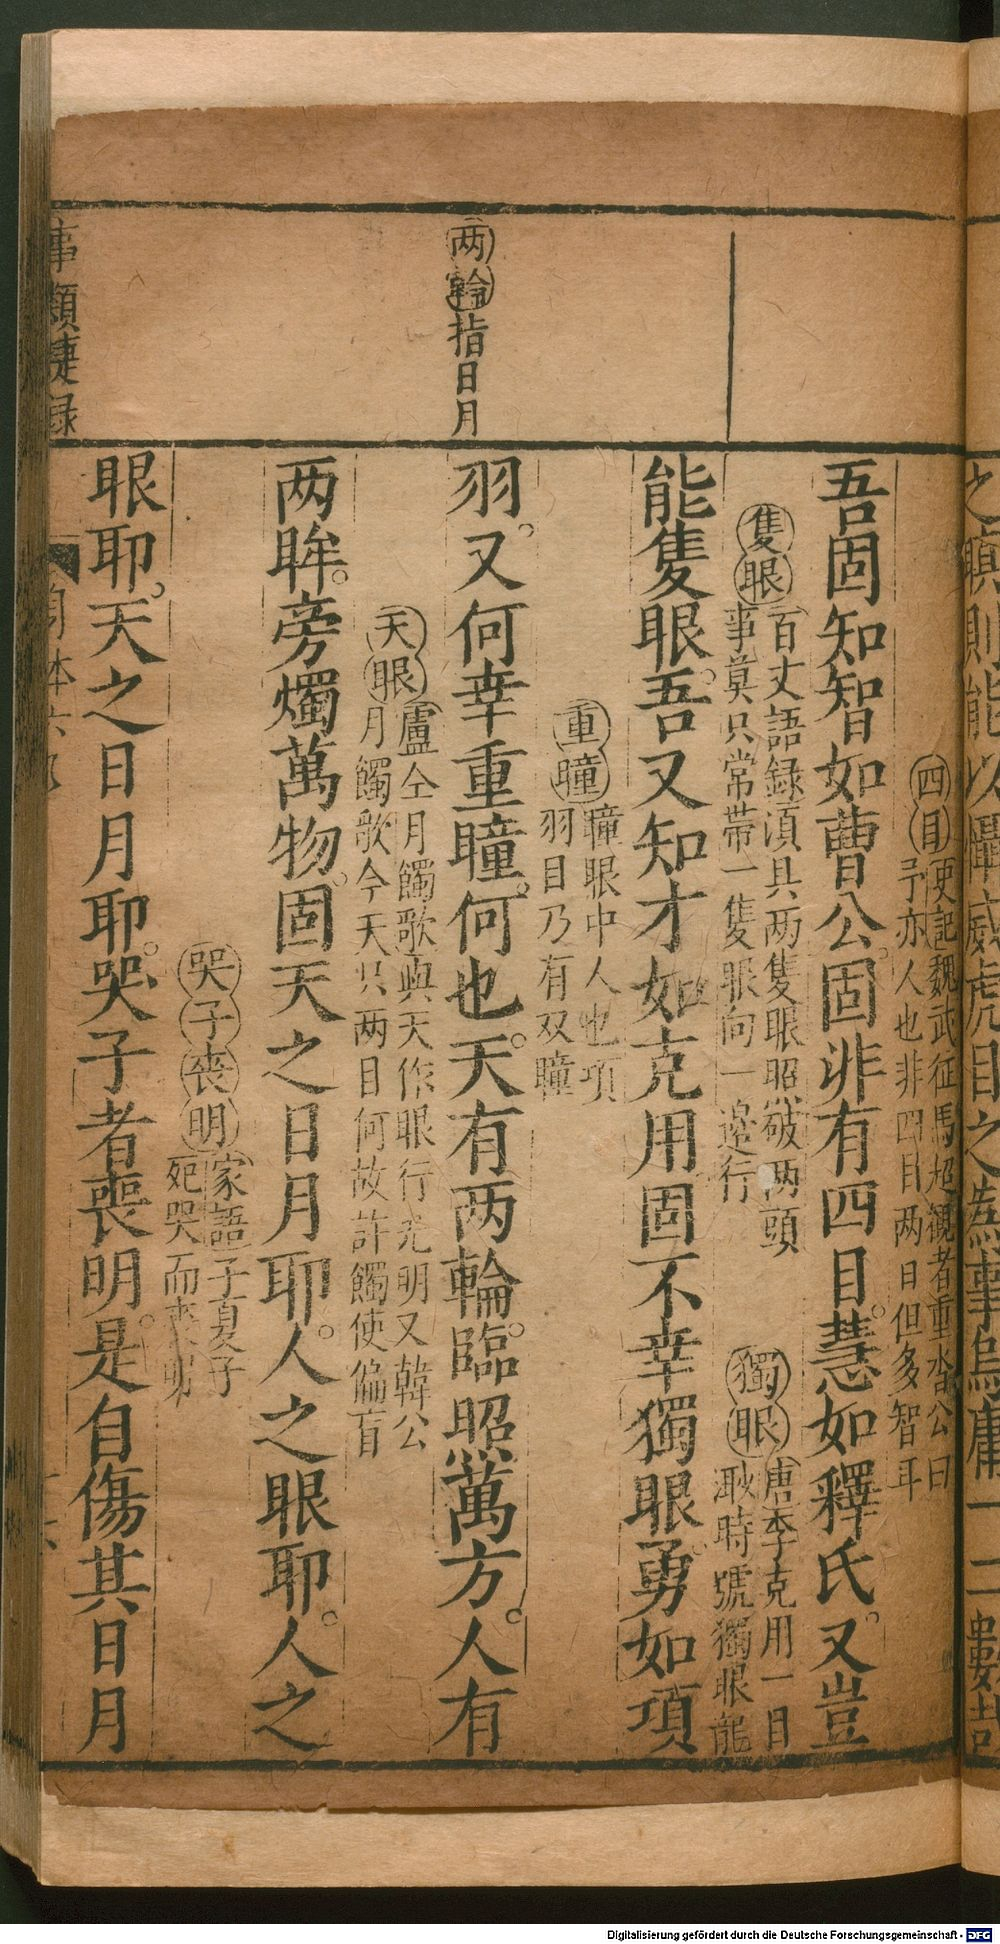 四目 史記魏武征馬超觀者重沓公曰
予亦人也非四目两口但多智耳
吾固知智如曹公固非有四目慧如釋氏又豈
隻眼 百丈語録湏具两隻眼照破两頭
事莫只常帶一隻眼向一邉行
獨眼 唐李克用一目
渺時號獨眼龍
能隻眼吾又知才如克用固不幸獨眼勇如項
重瞳 瞳眼中人也項
羽目乃有双瞳
两輪指日月
羽又何幸重瞳何也天有两輪臨照萬方人有
天眼 盧仝月蝕歌與天作眼行光明又韓公
月蝕歌今天只两目何故許蝕使偏盲
两眸旁燭萬物固天之日月耶人之眼耶人之
哭子丧明 家語子夏子
死哭而丧明
眼耶天之日月耶哭子者喪明是自傷其日月
事類捷録
身体六
Digitalisierung gefördert durch die Deutsche Forschungsgemeinschaft - DFG